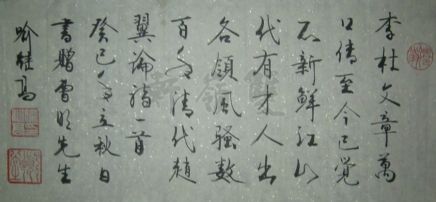 李杜文章萬
口傳至今已覺
不新鮮江山
代有才人出
各領風騷數
百年清代趙
翼論詩一首
癸巳年立秋日
書贈曹明先生
喻继高